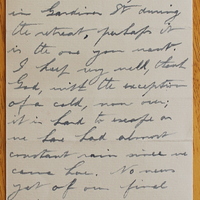 in Gardiner St during
the retreat, perhaps it
is the one you want.
I keep very well, thank
God, with the exception
of a cold, now over;
it is hard to escape as
we have had almost
constant rain since we
came here. No news
yet of our final